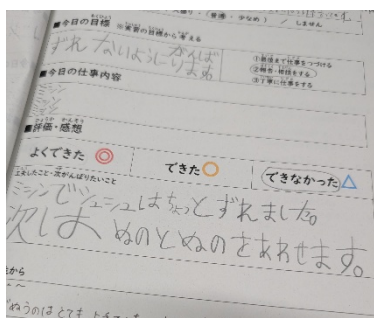 (普通・少なめ) / しません
■今日の目標 ※実習の目標から考える
ずれないようにがんばりまぬ
①最後まで仕事をつづける
②報告・相談をする
③丁寧に仕事をする
■今日の仕事内容
ミシン
■評価・感想
よくできた ◎
できた ○
できなかった △
工夫したこと・次がんばりたいこと
ミシンでシュシュはちょっとずれました。
次しは ぬのとぬのをあわせます。
から
ぬうのはとても